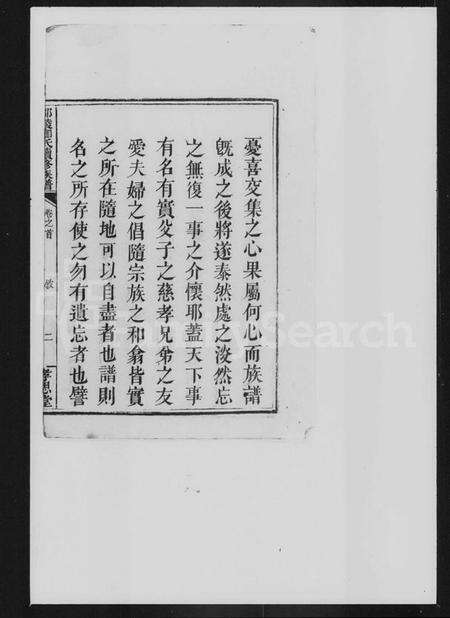 憂喜交集之心果屬何心而族譜
旣成之後將遂泰然處之淡然忘
之無復一事之介懷耶蓋天下事
有名有實父子之慈孝兄弟之友
愛夫婦之倡隨宗族之和翕皆實
之所在隨地可以自盡者也譜則
名之所存使之勿有遺忘者也譬
氏續修族譜
卷之首
二
孝思堂
Search